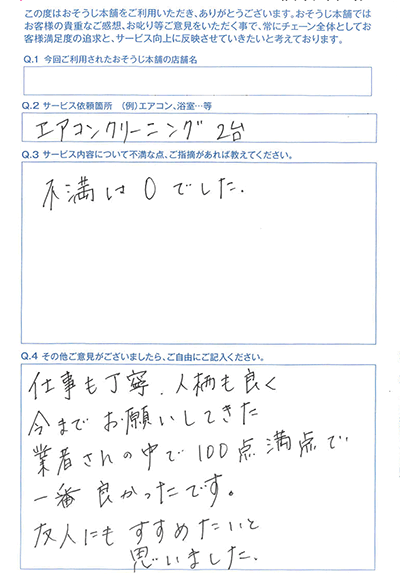 この度はおそうじ本舗をご利用いただき、ありがとうございます。おそうじ本舗では
お客様の貴重なご感想、お叱り等ご意見をいただく事で、常にチェーン全体としてお
客様満足度の追求と、サービス向上に反映させていきたいと考えております。
Q.1 今回ご利用されたおそうじ本舗の店舗名
Q.2 サービス依頼箇所 (例)エアコン、浴室…等
エアコンクリーニング 2台
Q.3 サービス内容について不満な点、ご指摘があれば教えてください。
不満は0でした.
Q.4 その他ご意見がございましたら、ご自由にご記入ください。
仕事も丁寧、人柄も良く
今までお願いしてきた
業者さんの中で100点満点で
一番良かったです。
友人にもすすめたいと
思いました.